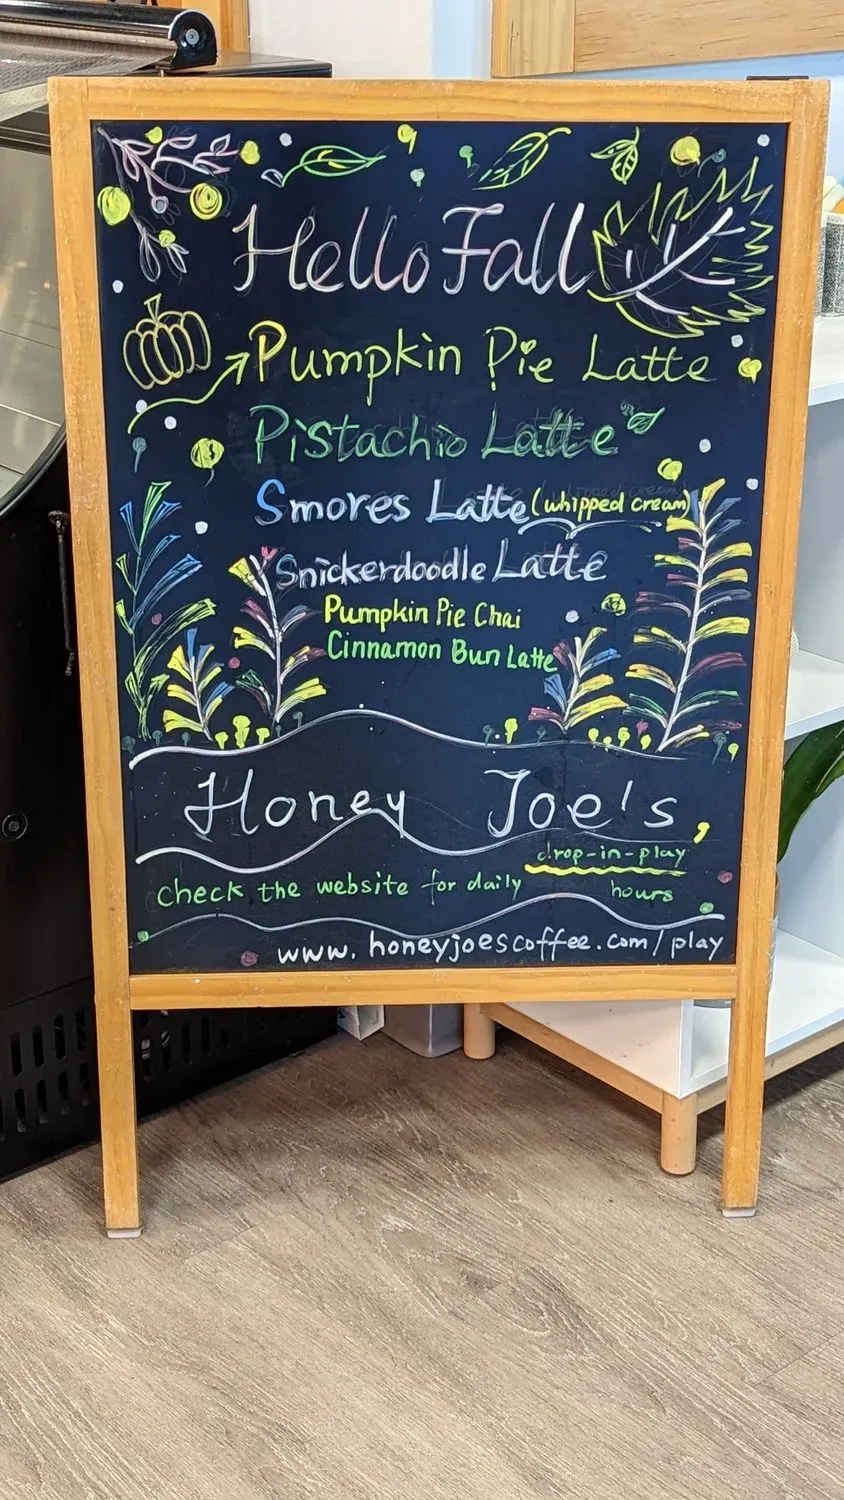 Hello Fall
Pumpkin Pie Latte
Pistachio Latte
Smores Latte (whipped cream)
Snickerdoodle Latte
Pumpkin Pie Chai
Cinnamon Bun Latte
Honey Joe's
drop-in-play
check the website for daily hours
www.honeyjoescoffee.com/play